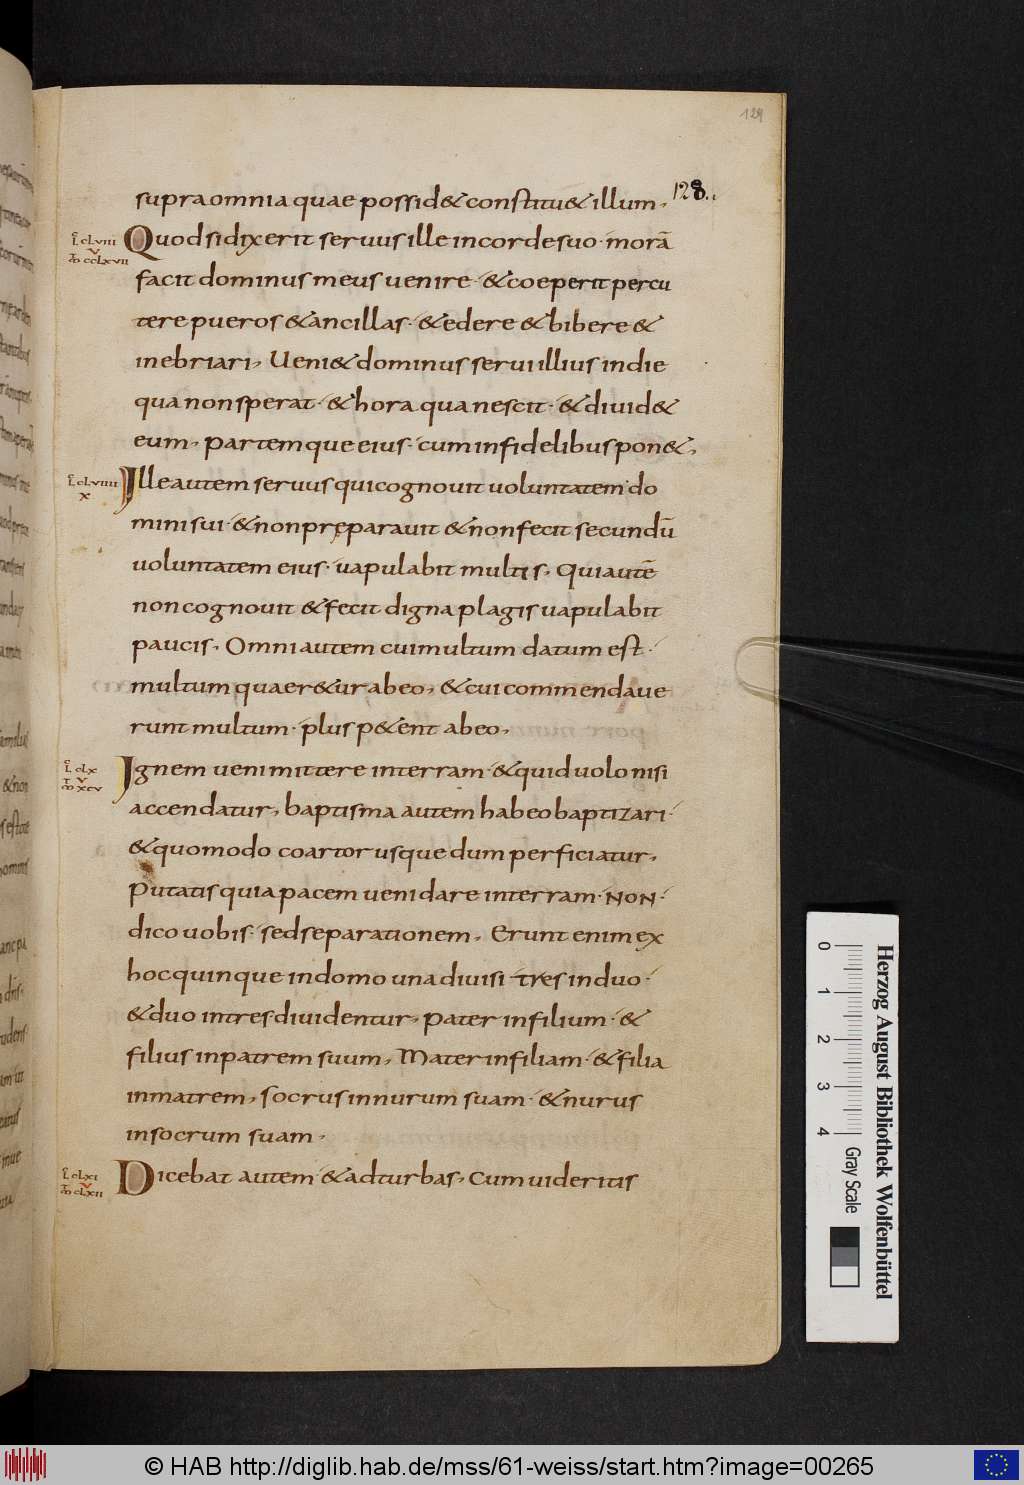 124
128.
supra omnia quae possid& constitu& illum.
Quod si dixerit seruus ille in corde suo · morā
facit dominus meus uenire · & coeperit percu
tere pueros & ancillas · & edere & bibere &
inebriari, Ueni& dominus serui illius in die
qua non sperat · & hora qua nescit · & diuid&
eum, partemque eius · cum infidelibus pon&,
Ille autem seruus qui cognouit uoluntatem do
mini sui · & non pręparauit & non fecit secundū
uoluntatem eius · uapulabit multis, Qui autē
non cognouit & fecit digna plagis uapulabit
paucis. Omni autem cui multum datum est ·
multum quaer&ur ab eo, & cui commendaue
runt multum · plus p&ent ab eo,
Ignem ueni mittere in terram · & quid uolo nisi
accendatur, baptisma autem habeo baptizari ·
& quomodo coartor usque dum perficiatur,
Putatis quia pacem ueni dare in terram · NON ·
dico uobis · sed separationem, Erunt enim ex
hoc quinque in domo una diuisi tres in duo ·
& duo in tres diuidentur, pater in filium · &
filius in patrem suum, Mater in filiam · & filia
in matrem, socrus in nurum suam · & nurus
in socrum suam,
Dicebat autem & ad turbas, Cum uideritis
cLVIII
V
ccLXVII
cLVIIII
X
cLX
V
XCV
cLXI
V
cLXII
0 1 2 3 4
Gray Scale
Herzog August Bibliothek Wolfenbüttel
© HAB http://diglib.hab.de/mss/61-weiss/start.htm?image=00265